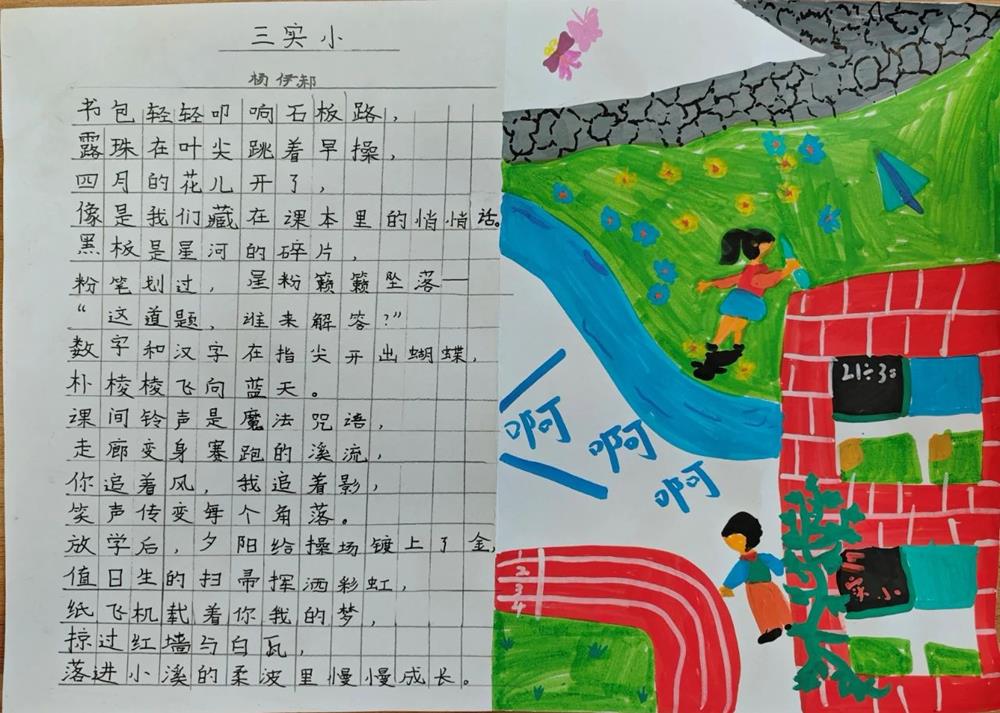 三实小
杨伊郝
书包轻轻叩响石板路，
露珠在叶尖跳着早操，
四月的花儿开了，
像是我们藏在课本里的悄悄话。
黑板是星河的碎片，
粉笔划过，星粉簌簌坠落—
“这道题，谁来解答？”
数字和汉字在指尖开出蝴蝶，
朴棱棱飞向蓝天。
课间铃声是魔法咒语，
走廊变身赛跑的溪流，
你追着风，我追着影，
笑声传变每个角落。
放学后，夕阳给操场镀上了金，
值日生的扫帚挥洒彩虹，
纸飞机载着你我的梦，
掠过红墙与白瓦，
落进小溪的柔波里慢慢成长。
21÷3=
啊
啊
啊
三
实小
1
2
3
4